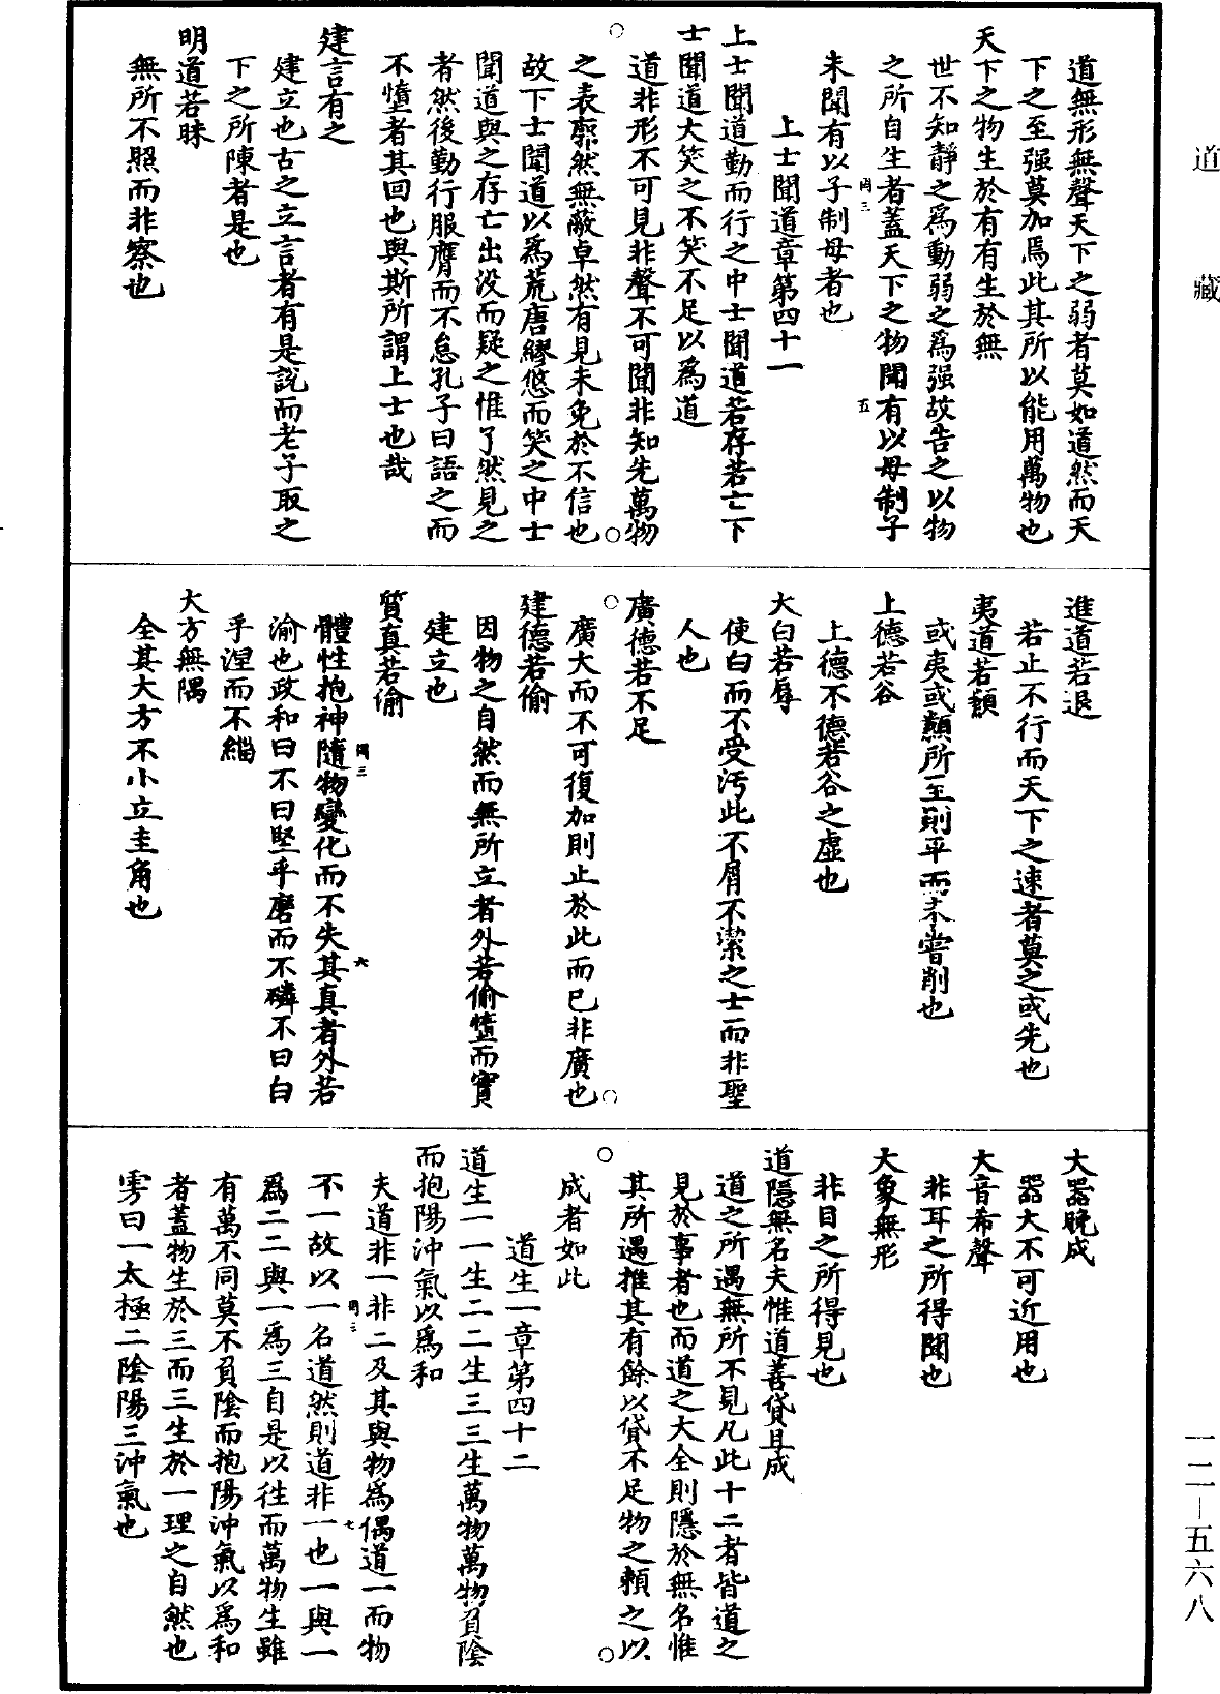 道藏
道無形無聲天下之弱者莫如道然而天
下之至强莫加焉此其所以能用萬物也
天下之物生於有有生於無
世不知靜之爲動弱之爲强故告之以物
之所自生者蓋天下之物聞有以母制子
罔三
五
未聞有以子制母者也
上士聞道章第四十一
上士聞道勤而行之中士聞道若存若亡下
士聞道大笑之不笑不足以爲道
道非形不可見非聲不可聞非知先萬物
之表廓然無蔽卓然有見未免於不信也
故下士聞道以爲荒唐繆悠而笑之中士
聞道與之存亡出没而疑之惟了然見之
者然後勤行服膺而不怠孔子曰語之而
不惰者其回也與斯所謂上士也哉
建言有之
建立也古之立言者有是說而老子取之
下之所陳者是也
明道若昧
無所不照而非察也
進道若退
若止不行而天下之速者莫之或先也
夷道若纇
或夷或纇所至則平而未嘗削也
上德若谷
上德不德若谷之虛也
大白若辱
使白而不受汚此不屑不潔之士而非聖
人也
廣德若不足
廣大而不可復加則止於此而已非廣也
建德若偷
因物之自然而無所立者外若偷惰而實
建立也
質真若偷
體性抱神隨物變化而不失其真者外若
罔三
六
渝也政和曰不曰堅乎磨而不磷不曰白
乎涅而不緇
大方無隅
全其大方不小立圭角也
大器晚成
器大不可近用也
大音希聲
非耳之所得聞也
大象無形
非目之所得見也
道隱無名夫惟道善貸且成
道之所遇無所不見凡此十二者皆道之
見於事者也而道之大全則隱於無名惟
其所遇推其有餘以貸不足物之賴之以
成者如此
道生一章第四十二
道生一一生二二生三三生萬物萬物負陰
而抱陽沖氣以爲和
夫道非一非二及其與物爲偶道一而物
不一故以一名道然則道非一也一與一
罔三
七
爲二二與一爲三自是以往而萬物生雖
有萬不同莫不負陰而抱陽沖氣以爲和
者蓋物生於三而三生於一理之自然也
雱曰一太極二陰陽三沖氣也
一二—五六八